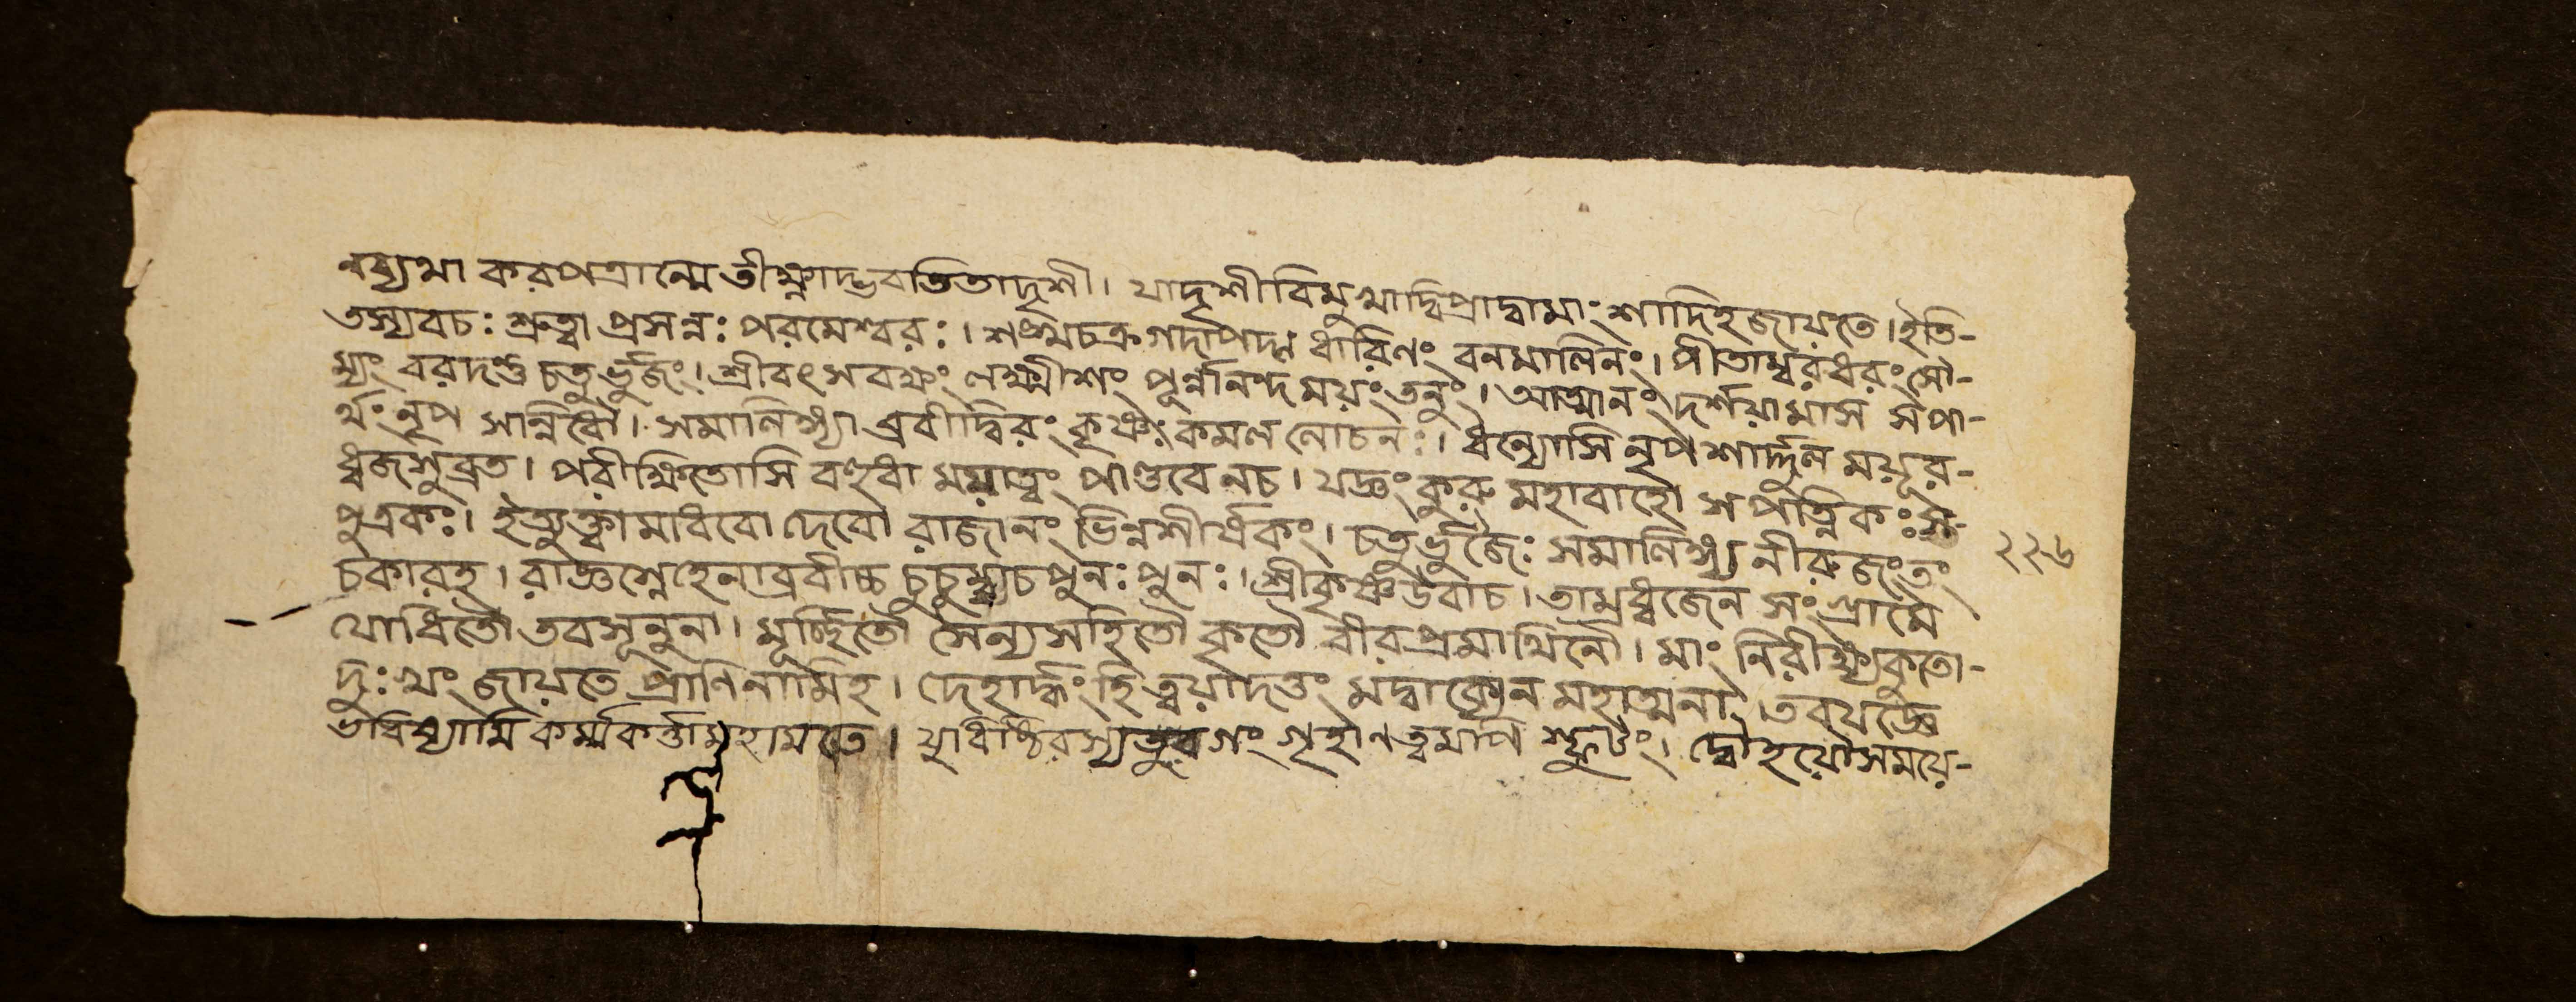 নব্যথা করপত্রান্মে তীক্ষ্ণাদ্ভবতিতাদৃশী। যাদৃশীবিমুখাদ্বিপ্রাদ্বামাংশাদিহজায়তে। ইতি-
তস্যবচঃ শ্রুত্বা প্রসন্নঃ পরমেশ্বরঃ। শঙ্খচক্রগদাপদ্ম ধারিণং বনমালিনং। পীতাম্বরধরং সৌ-
ম্যং বরদন্তু চতুর্ভুজং। শ্রীবৎসবক্ষং লক্ষ্মীশং পূর্ন্নানন্দময়ংতনুং। আত্মানং দর্শয়ামাস সপা-
র্থং নৃপ সান্নিধৌ। সমালিঙ্গ্যা ব্রবীদ্বিরং কৃষ্ণঃ কমল লোচনঃ। ধন্যোসি নৃপ শার্দ্দুল ময়ূর-
ধ্বজশুব্রত। পরীক্ষিতোসি বহুধা ময়াত্বং পাণ্ডবেনচ। যজ্ঞং কুরু মহাবাহো সপত্নিকঃ স-
পুত্রকঃ। ইত্যুক্ত্বামাধবো দেবো রাজানং ভিন্নশীর্ষকং। চতুর্ভুজৈঃ সমালিঙ্গ্য নীরুজংতং
চকারহ। রাজ্ঞস্নেহেনাব্রবীচ্চ চুচুম্ব্যচপুনঃ পুনঃ। শ্রীকৃষ্ণউবাচ। তাম্রধ্বজেন সংগ্রামে
যোধিতৌ তবসূনুনা। মূর্চ্ছিতৌ সৈন্যসহিতৌ কৃতৌ বীরপ্রমাথিনৌ। মাং নিরীক্ষ্যকুতো-
দুঃখং জায়তে প্রাণিনামিহ। দেহার্দ্ধংহি ত্বয়াদত্তং মদ্বাক্যেন মহাত্মনা। তবযজ্ঞে
ভবিষ্যামি কর্ম্মকর্ত্তামহামতে। যুধিষ্ঠিরস্যতুরগং গৃহাণত্বমপি স্ফুটং। দ্বৌহয়ৌসময়ে-
২২৬